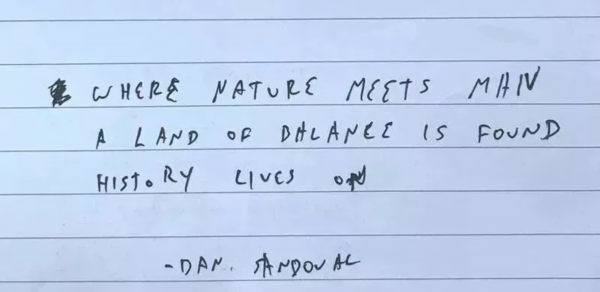 WHERE NATURE MEETS MAN
A LAND OF BALANCE IS FOUND
HISTORY LIVES ON
-DAN. SANDOVAL